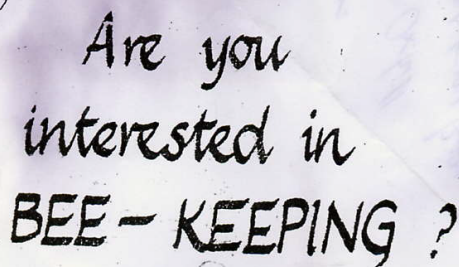 Are you
interested in
BEE - KEEPING ?